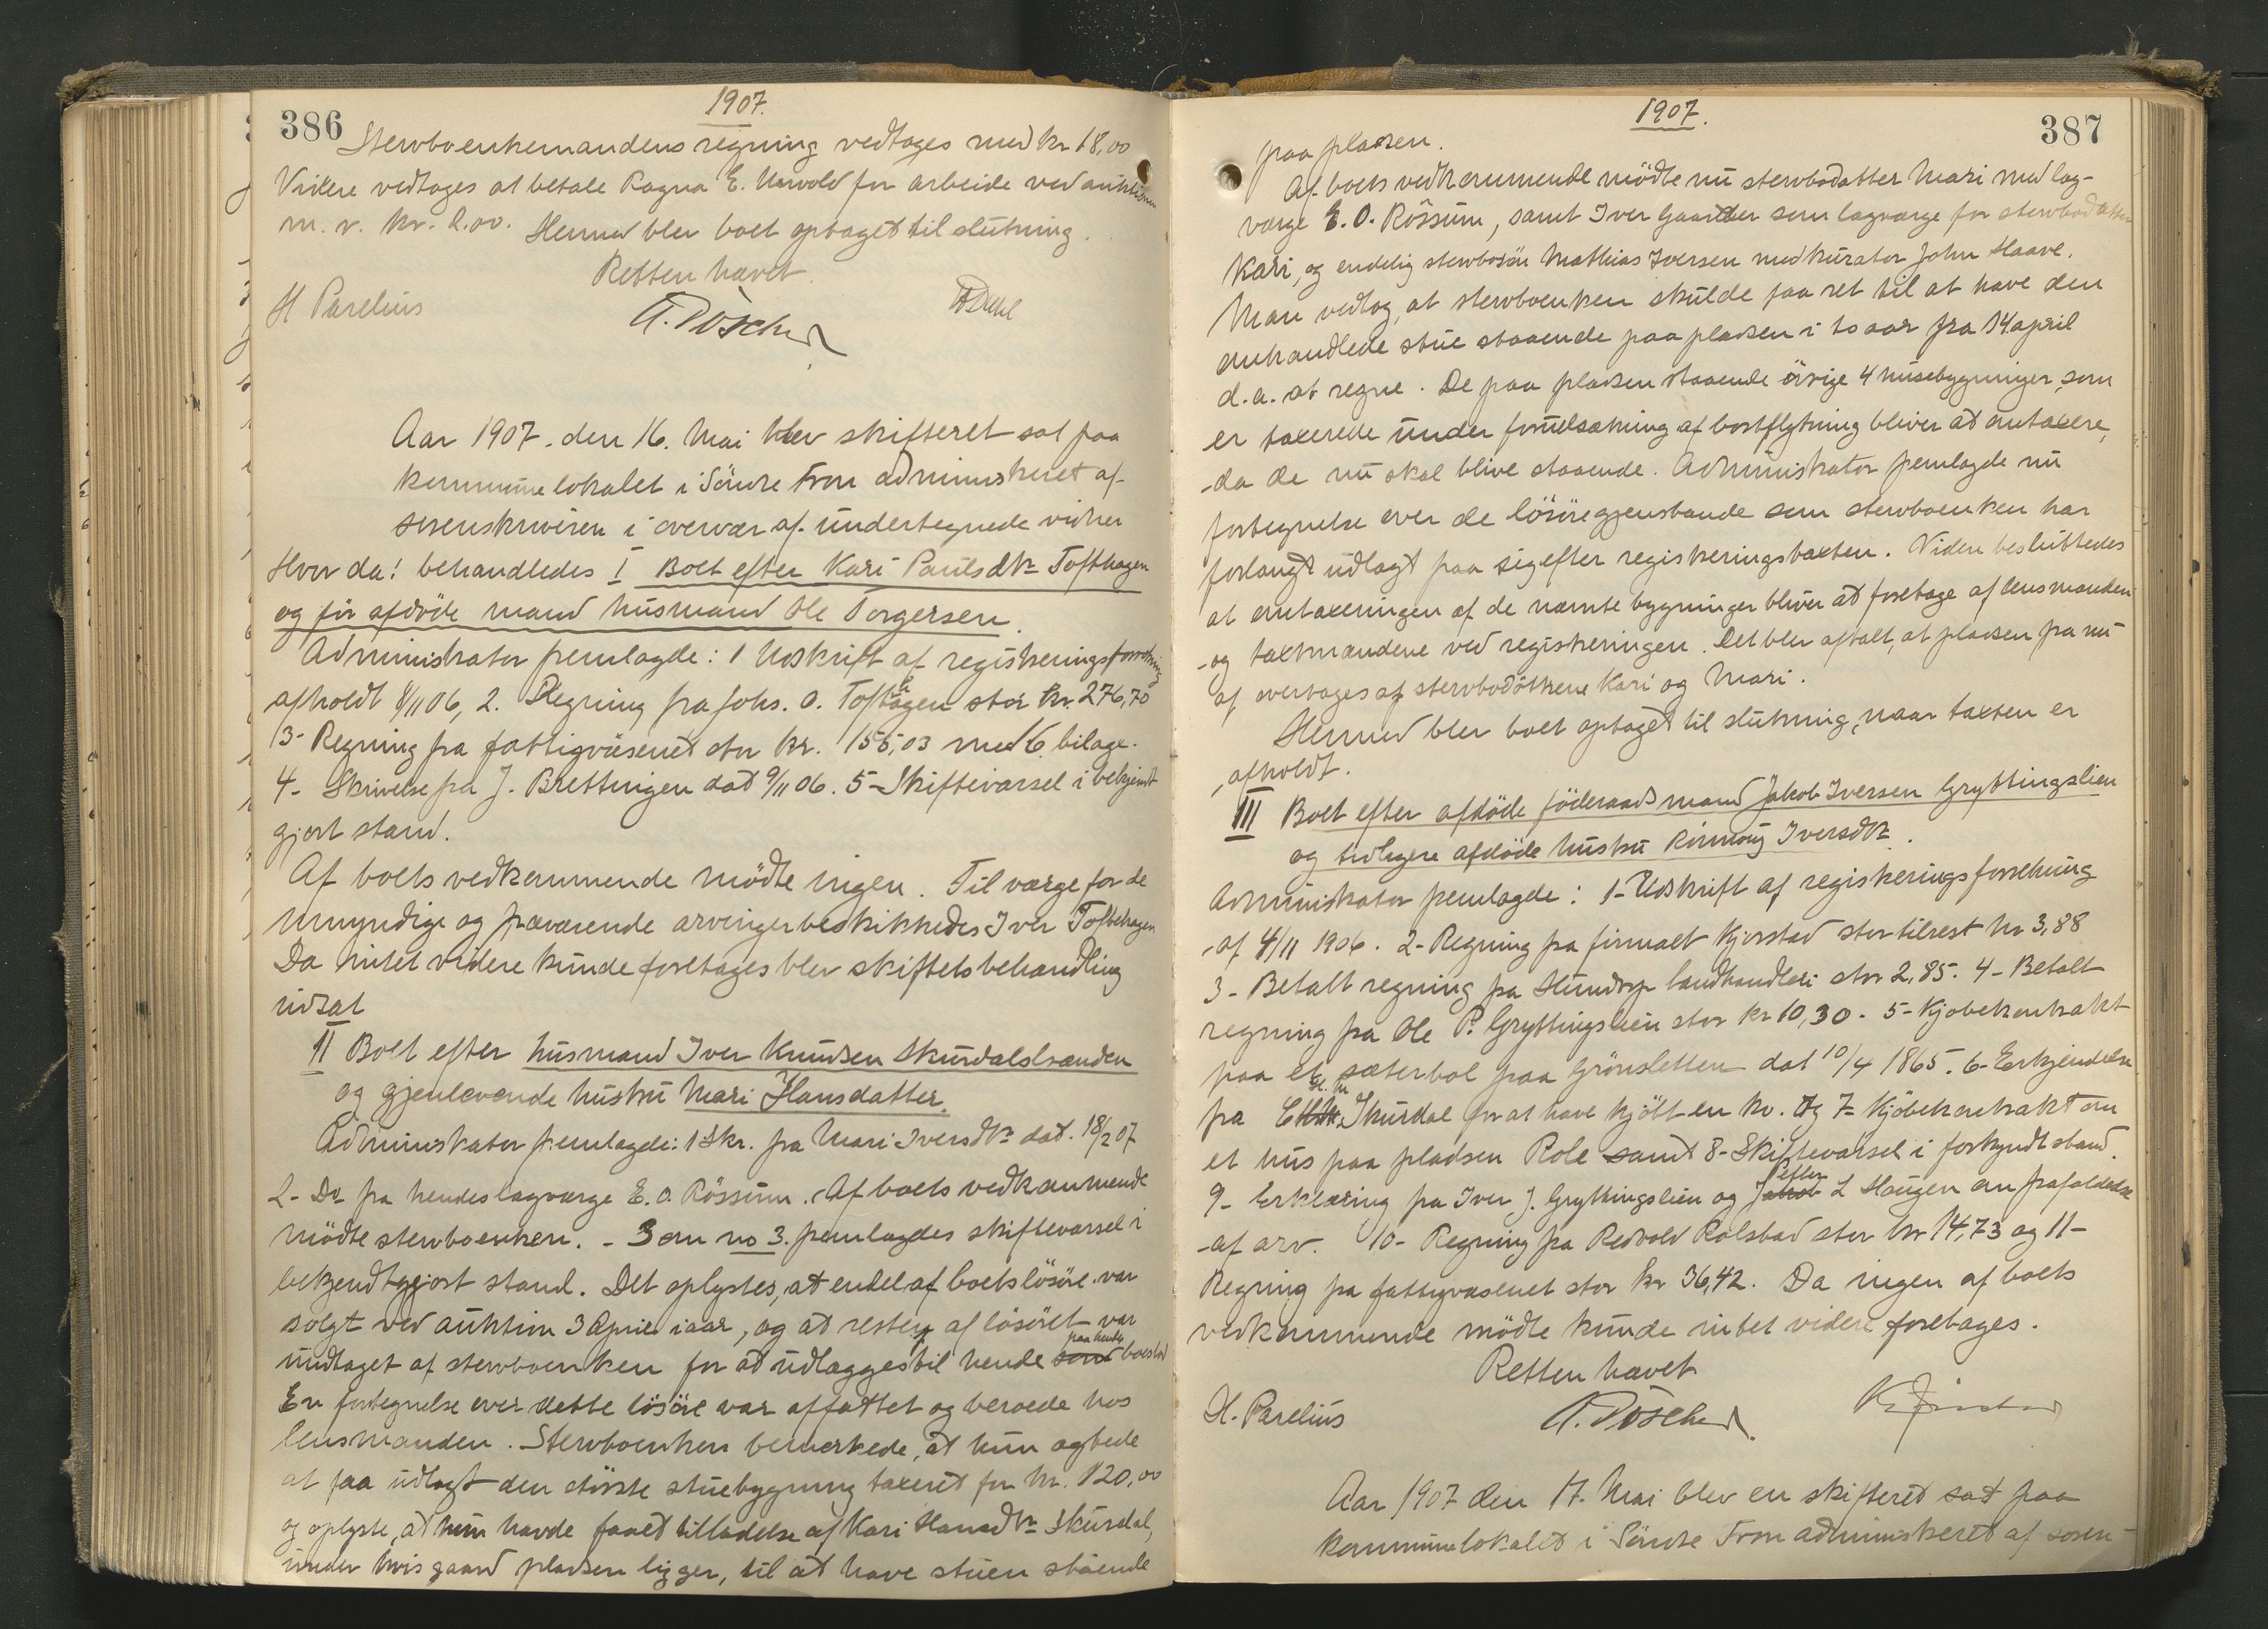 386
1907.
Stervboenkemandens regning vedtages med kr 18,00
Videre vedtages at betale Ragna E. for arbeide ved auktionen
m. v. kr. 2.00. Hermed blev boet optaget til slutning.
Retten hævet
H Parelius
Aar 1907. den 16. Mai blev skifteret sat paa
kommunelokalet i Söndre Fron administreret af
sorenskriveren i overvær af undertegnede vidner
Hvor da! behandledes I Boet efter Kari Paulsdtr Tofthagen
og för afdöde mand husmand Ole Torgersen.
Administrator fremlagde: 1 Udskrift af registreringsforretning
afholdt 8/11 06, 2. Regning fra Johs. O. Tofthagen stor kr. 276,70
3- Regning fra fattigväsenet stor kr. 155,03 med 6 bilage.
4- Skrivelse fra J. Brettingen dat 9/11 06. 5- Skiftevarsel i bekjendt
gjort stand.
Af boets vedkommende mödte ingen. Til værge for de
umyndige og fraværende arvinger beskikkedes Iver Tofthagen
Da intet videre kunde foretages blev skiftets behandling
udsat
II Boet efter husmand Iver Knudsen Skurdalsbranden
og gjenlevende hustru Mari Hansdatter.
Administrator fremlagde: 1 Skr. fra Mari Iversdtr dat. 18/2 07
2- Do fra hendes lagværge E. O. Rössum. Af boets vedkommende
mödte stervboenken. - Som no 3. fremlagdes skiftevarsel i
bekjendtgjort stand. Det oplystes, at endel af boets lösöre var
solgt ved auktion 3 April iaar, og at resten af lösöret var
undtaget af stervboenken for at udlægges til hende som paa hendes boeslod
En fortegnelse over dette lösöre var affattet og beroede hos
lensmanden. Stervboenken bemerkede, at hun agtede
at faa udlagt den störste stuebygning taxeret for kr. 120,00
og oplyste, at hun havde faaet tilladelse af Kari Hansdtr Skurdal,
under hvis gaard pladsen ligger, til at have stuen stående
1907.
387
paa pladsen.
Af boets vedkommende mödte nu stervbodatter Mari med lag-
værge E. O. Rössum, samt Iver Gaarder som lagværge for stervbodatter
Kari, og endelig stervbosön Mathias Iversen med kurator John Haave.
Man vedtog, at stervboenken skulde faa ret til at have den
omhandlede stue staaende paa pladsen i to aar fra 14 april
d. a. at regne. De paa pladsen staaende övrige 4 husebygninger, som
er taxerede under forudsætning af bortflytning bliver at omtaxere,
da de nu skal blive staaende. Administrator fremlagde nu
fortegnelse over de lösöregjenstande som stervboenken har
forlangt udlagt paa sig efter registreringstaxten. Videre besluttedes
at omtaxeringen af de nævnte bygninger bliver at foretage af lensmanden
og taxtmændene ved registreringen. Det blev aftalt, at pladsen fra nu
af overtages af stervbodötrene Kari og Mari.
Hermed blev boet optaget til slutning, naar taxten er
afholdt.
III Boet efter afdöde föderaadsmand Jakob Iversen Gryttingslien
og tidligere afdöde hustru Rönnaug Iversdtr.
Administrator fremlagde: 1- Udskrift af registreringsforretning
af 4/11 1906. 2- Regning fra firmaet Kjorstad stor tilrest kr 3,88
3- Betalt regning fra Hundorp landhandleri stor 2,85. 4- Betalt
regning fra Ole P. Gryttingslien stor kr 10,30. 5- Kjöbekontrakt
paa et sæterbol paa Grönsletten dat 10/4 1865. 6- Erkjendelse
fra Skurdal for at have kjöbt en ko. Og 7- Kjöbekontrakt om
et hus paa pladsen Role samt 8- Skiftevarsel i forkyndt stand.
9- Erklæring fra Iver J. Gryttingslien og Jakob Petter L Haugen om frafaldelse
af arv. 10- Regning fra Redvold Rolstad stor kr 14,73 og 11-
Regning fra fattigvæsenet stor kr 36,42. Da ingen af boets
vedkommende mödte kunde intet videre foretages.
Retten hævet
H. Parelius
Aar 1907 den 17. Mai blev en skifteret sat paa
kommunelokalet i Söndre Fron administreret af soren-